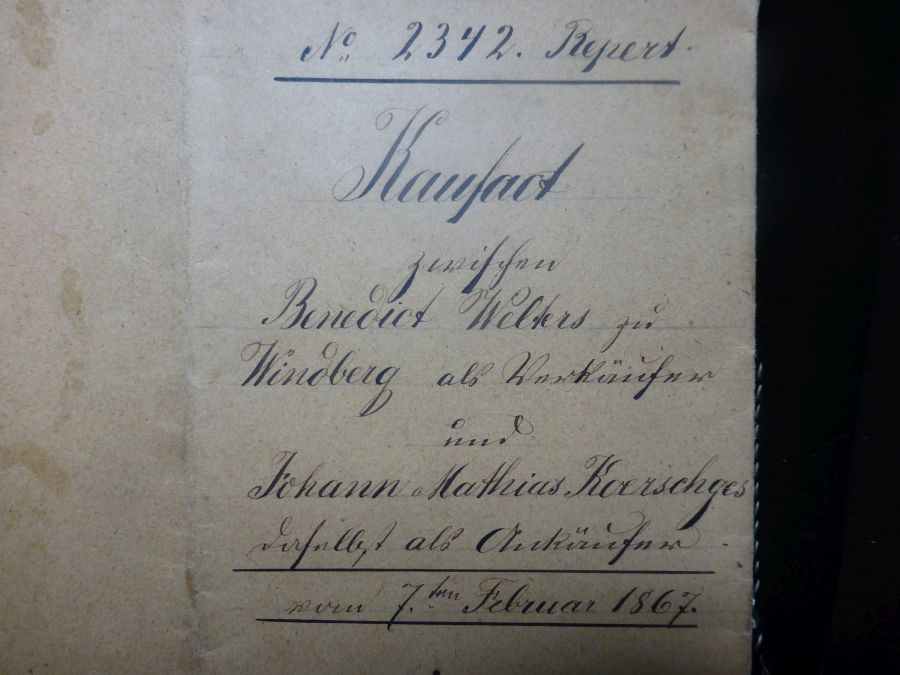 No 2342. Repert.
Kaufact
zwischen
Benedict Welters zu
Windberg als Verkäufer
und
Johann Mathias Koerschges
daselbst als Ankäufer
vom 7.ten Februar 1867.